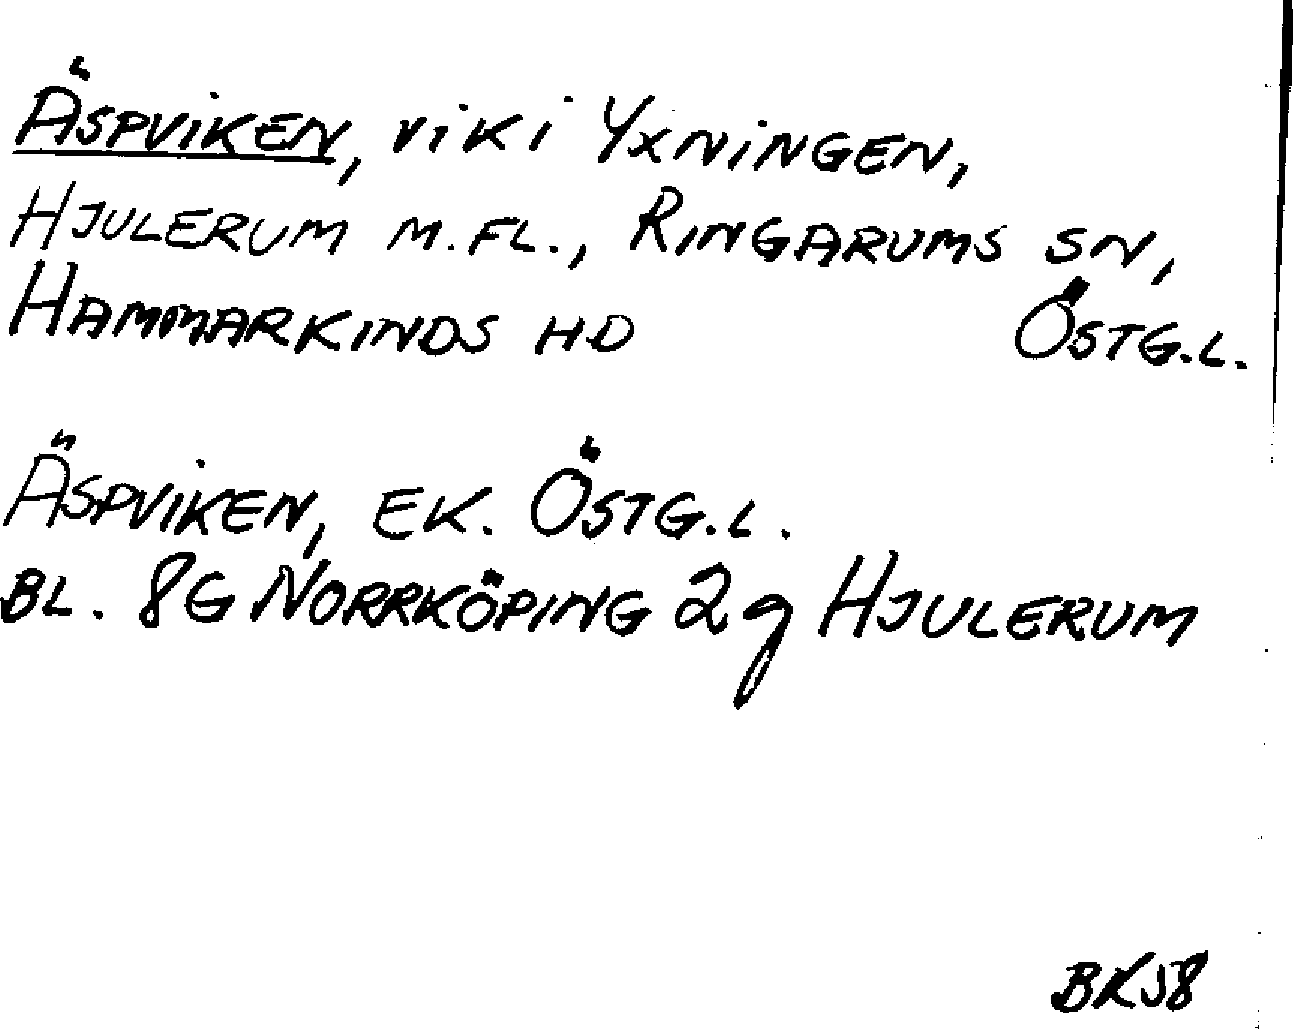 ÄSPVIKEN, VIK I YXNINGEN,
HJULERUM M.FL., RINGARUMS SN,
HAMMARKINDS HD ÖSTG.L.
ÄSPVIKEN, EK. ÖSTG.L.
BL. 8G NORRKÖPING 2g HJULERUM
BKJ8